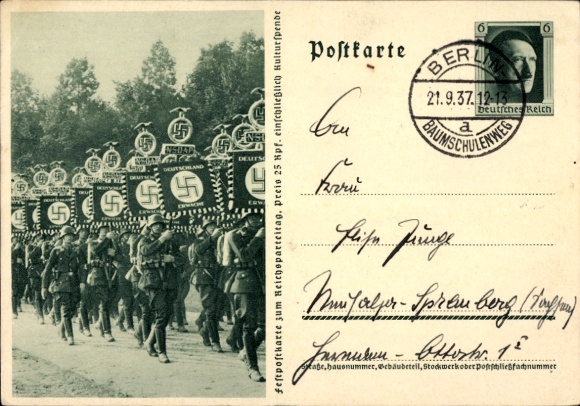 Postkarte
6 6
Deutsches Reich
BERLIN-
21.9.37.12-13
a
BAUMSCHULENWEG
NSDAP
DEUTSCHLAND
ERWACHE
Festpostkarte zum Reichsparteitag, Preis 25 Rpf. einschließlich Kulturspende
An
Frau
Elise Junge
Neusalza-Spremberg (Sachsen)
Hermann-Ottostr.
Straße, Hausnummer, Gebäudeteil, Stockwerk oder Postschließfachnummer